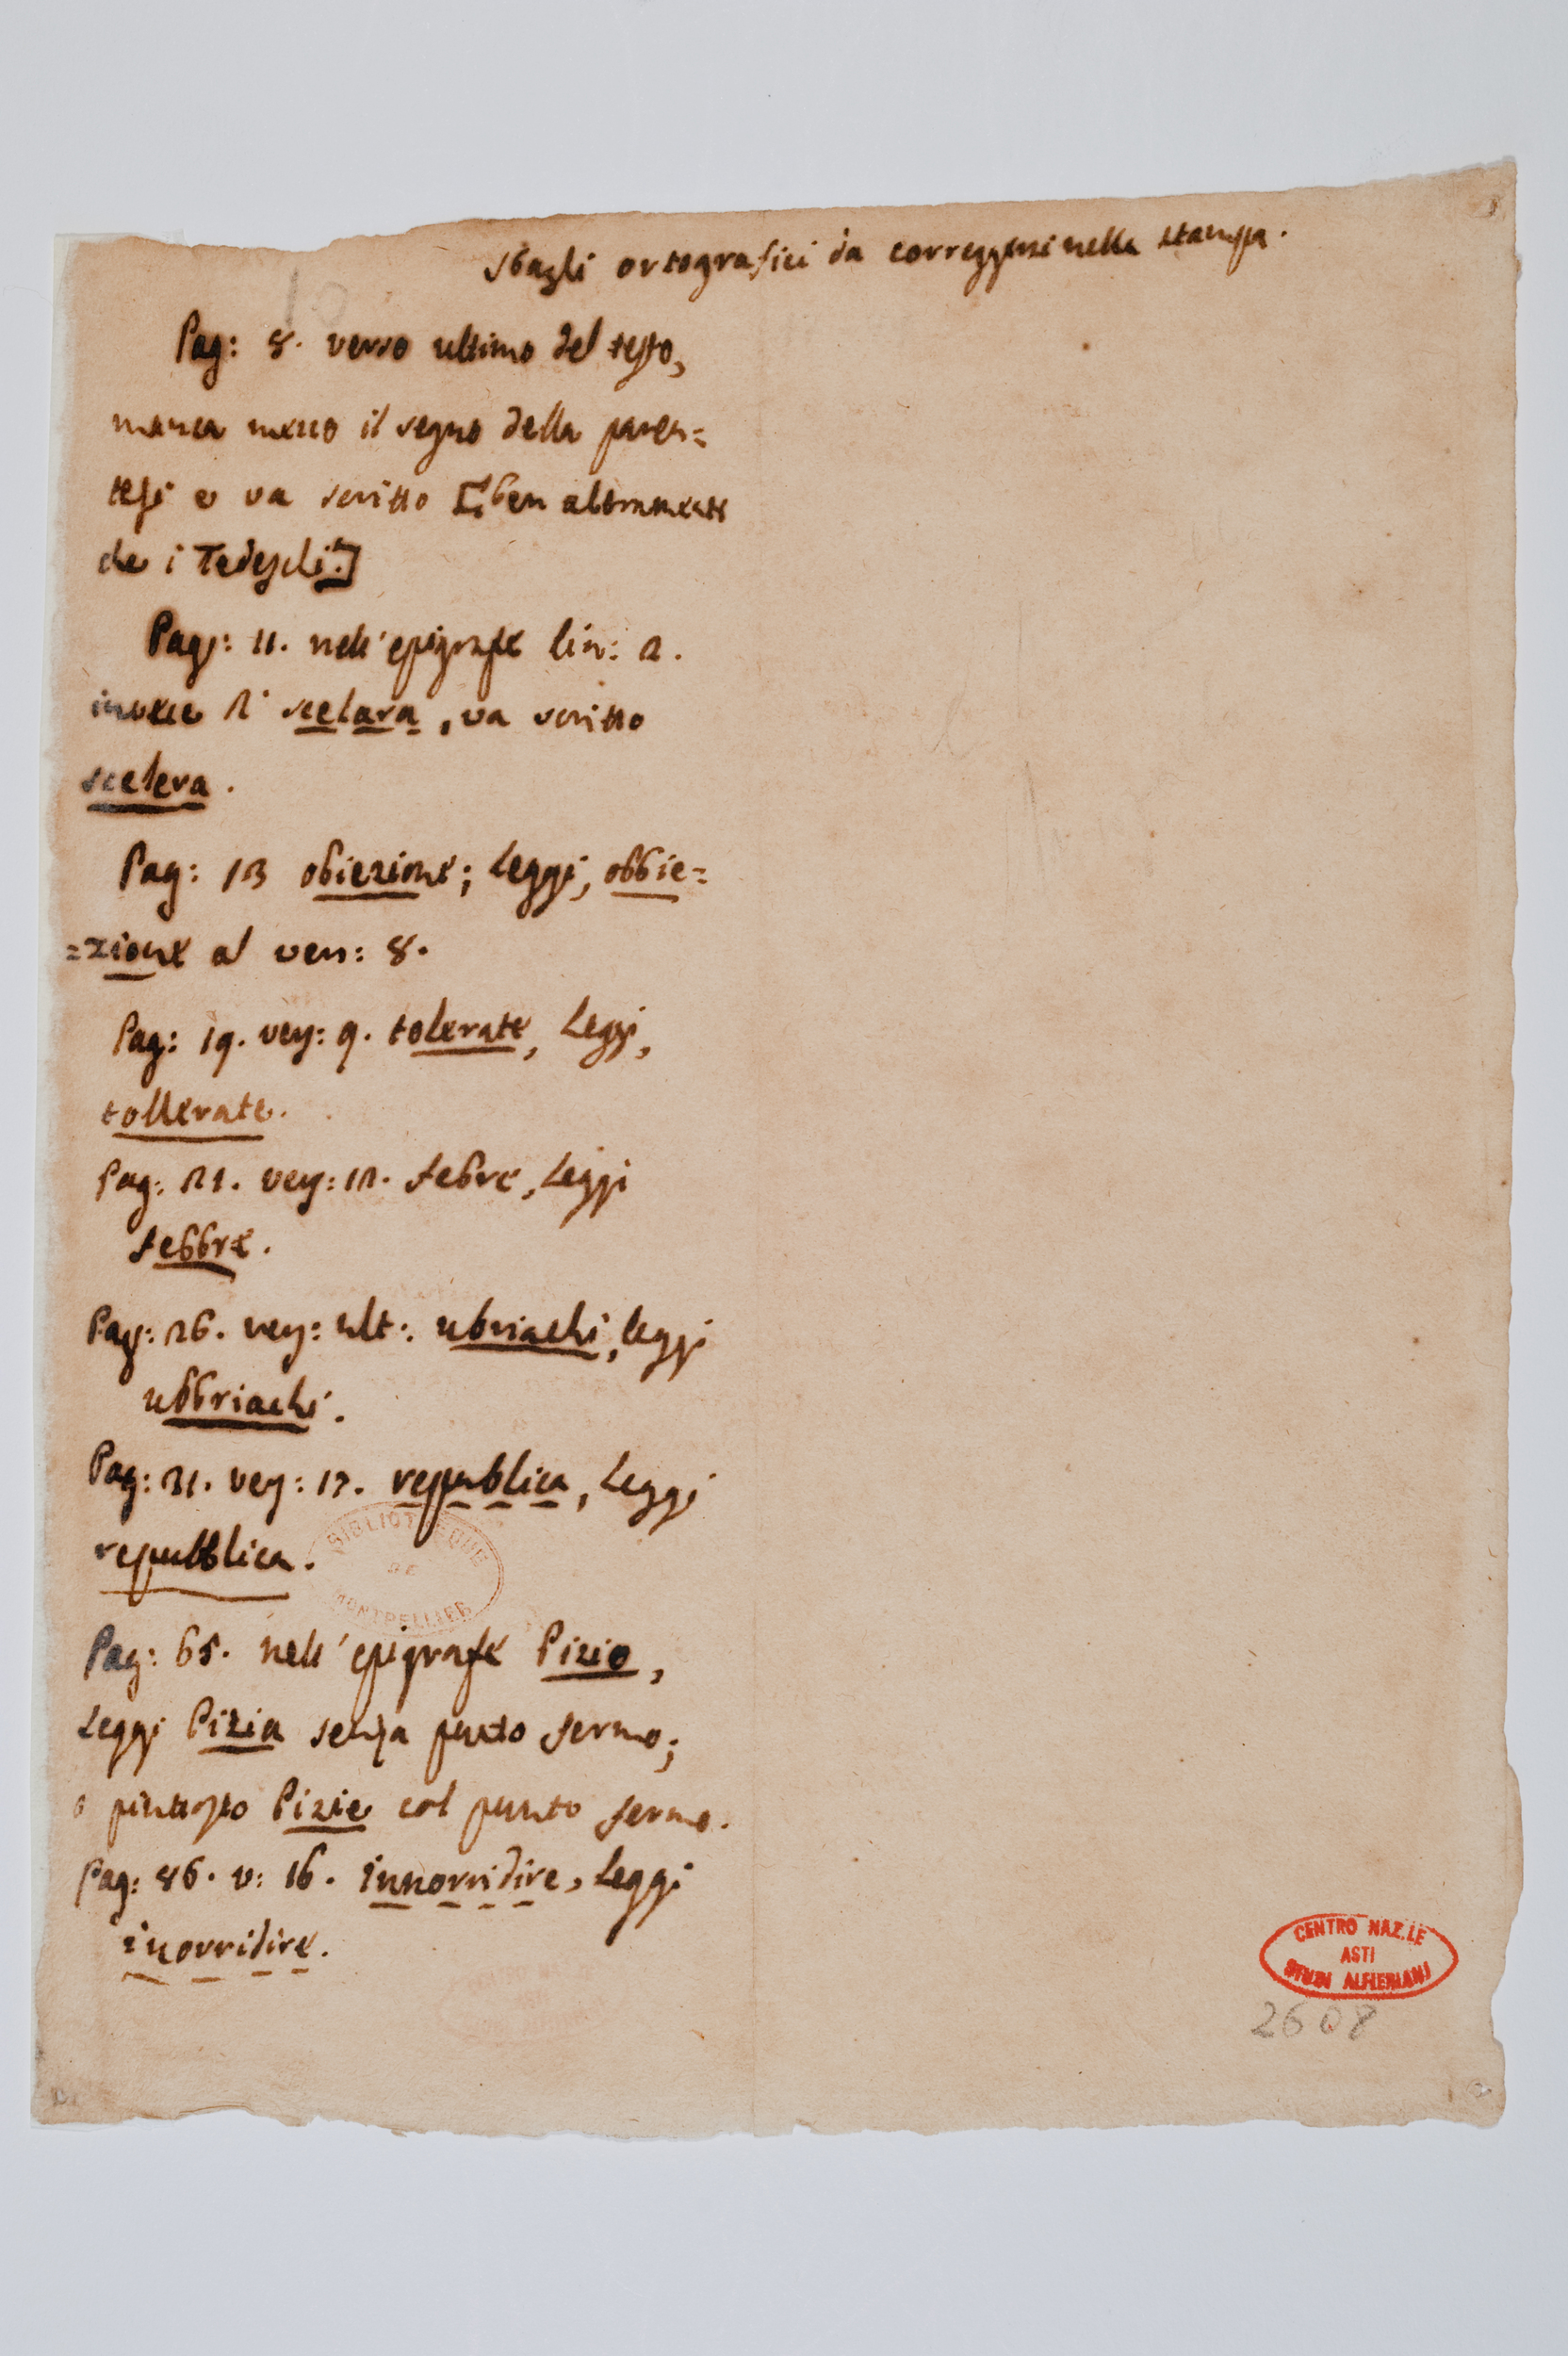 sbagli ortografici da correggersi nella stampa.
Pag: 8. verso ultimo del testo,
manca mezzo il segno della paren=
tesi e va scritto [ben altramente
che i Tedeschi.]
Pag: 11. nell'epigrafe lin: 2.
invece di scelara, va scritto
scelera.
Pag: 13 obiezione; Leggi, obbie=
=zione al ver: 8.
Pag: 19. ver: 9. tolerate, Leggi,
tollerate.
Pag: 21. ver: 12. febre, Leggi
febbre.
Pag: 26. ver: ult: ubriachi, leggi
ubbriachi.
Pag: 31. ver: 17. republica, Leggi
repubblica.
BIBLIOTHEQUE
DE
MONTPELLIER
Pag: 65. nell'epigrafe Pizio,
Leggi Pizia senza punto fermo;
o piuttosto Pizie col punto fermo.
Pag: 86. v: 16. innorridire, Leggi
inorridire.
CENTRO NAZ.LE
ASTI
STUDI ALFIERIANI
2608